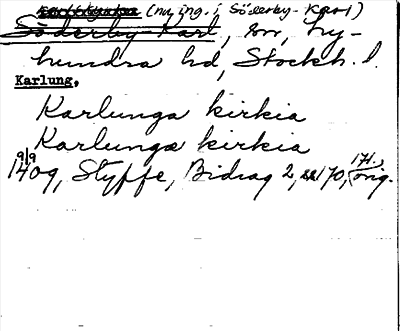 (nu ing. i Söderby-Karl)
Söderby-Karl, sn, Ly-
hundra hd, Stockh. l.
Karlung,
Karlunga kirkia
Karlungæ kirkia
1409 9/9, Styffe, Bidrag 2, s. 170, 171, orig.